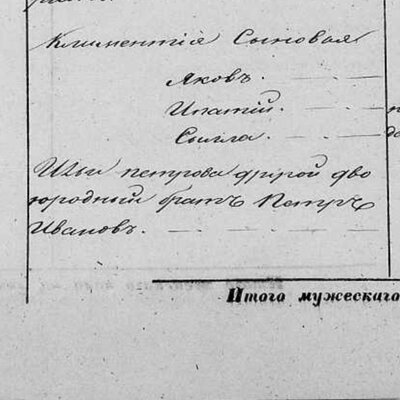 Климентія Сыновая
Яковъ.
Ипатій.
Сысла.
Ильи петрова другой дво
юродный братъ Петръ
Ивановъ.
Итого мужескаго